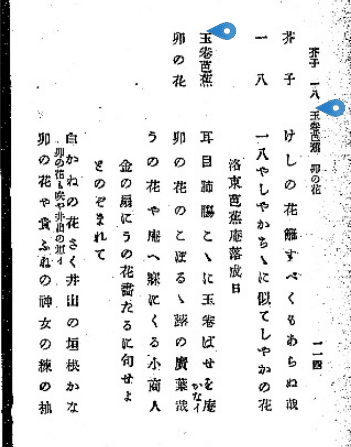 芥子 一八 玉巻芭蕉 卯の花 一一四
芥子 けしの花籬すべくもあらぬ哉
一八 一八やしやがちゝに似てしやがの花
洛東芭蕉庵落成日
玉巻芭蕉 耳目肺腸こゝに玉巻ばせを庵
かなイ
卯の花 卯の花のこぼるゝ蕗の廣葉哉
うの花や庵へ寐にくる小商人
金の扇にうの花畫たるに句せよ
とのぞまれて
白かねの花さく井出の垣根かな
卯の花も咲や井出の里イ
卯の花や貴ふねの神女の練の袖